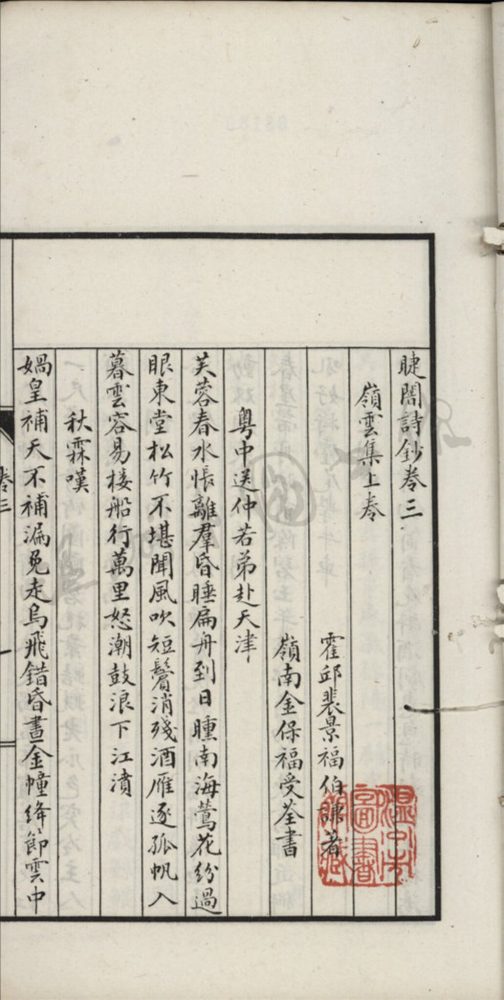 睫闇詩鈔卷三
嶺雲集上卷
霍邱裴景福伯謙著
嶺南金保福受荃書
粵中送仲若弟赴天津
芙蓉春水悵離羣昏睡扁舟到日曛南海鶯花紛過
眼東堂松竹不堪聞風吹短鬢消殘酒雁逐孤帆入
暮雲容易接船行萬里怒潮鼓浪下江濆
秋霖嘆
媧皇補天不補漏兔走烏飛錯昏晝金幢絳節雲中
卷三